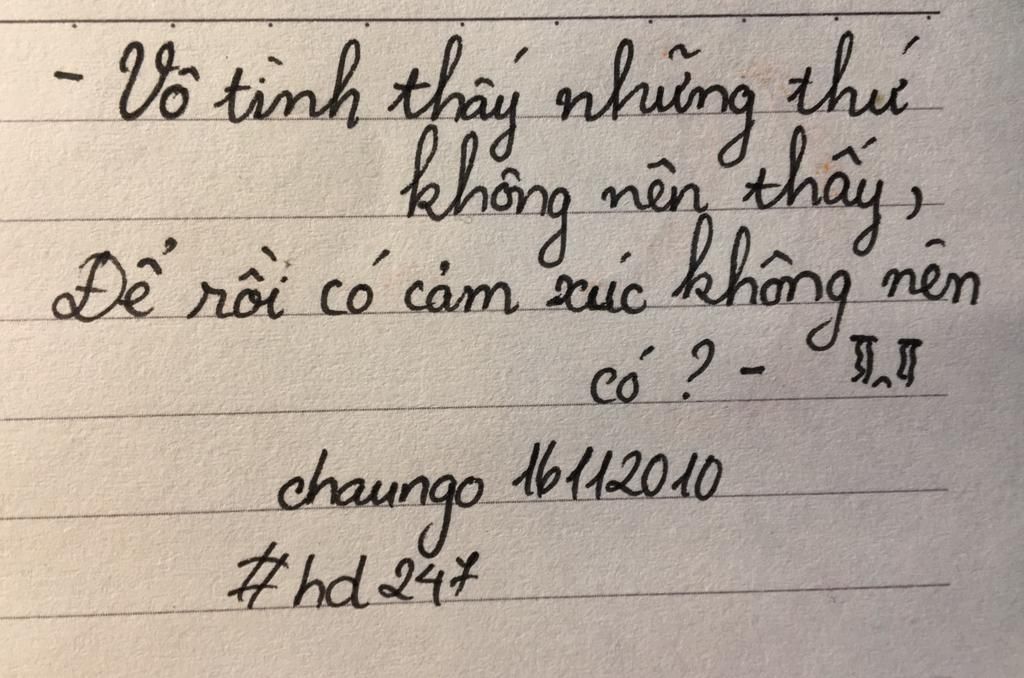 - Vô tình thấy những thứ
không nên thấy,
Để rồi có cảm xúc không nên
có ? -
chaungo 16112010
#hd247